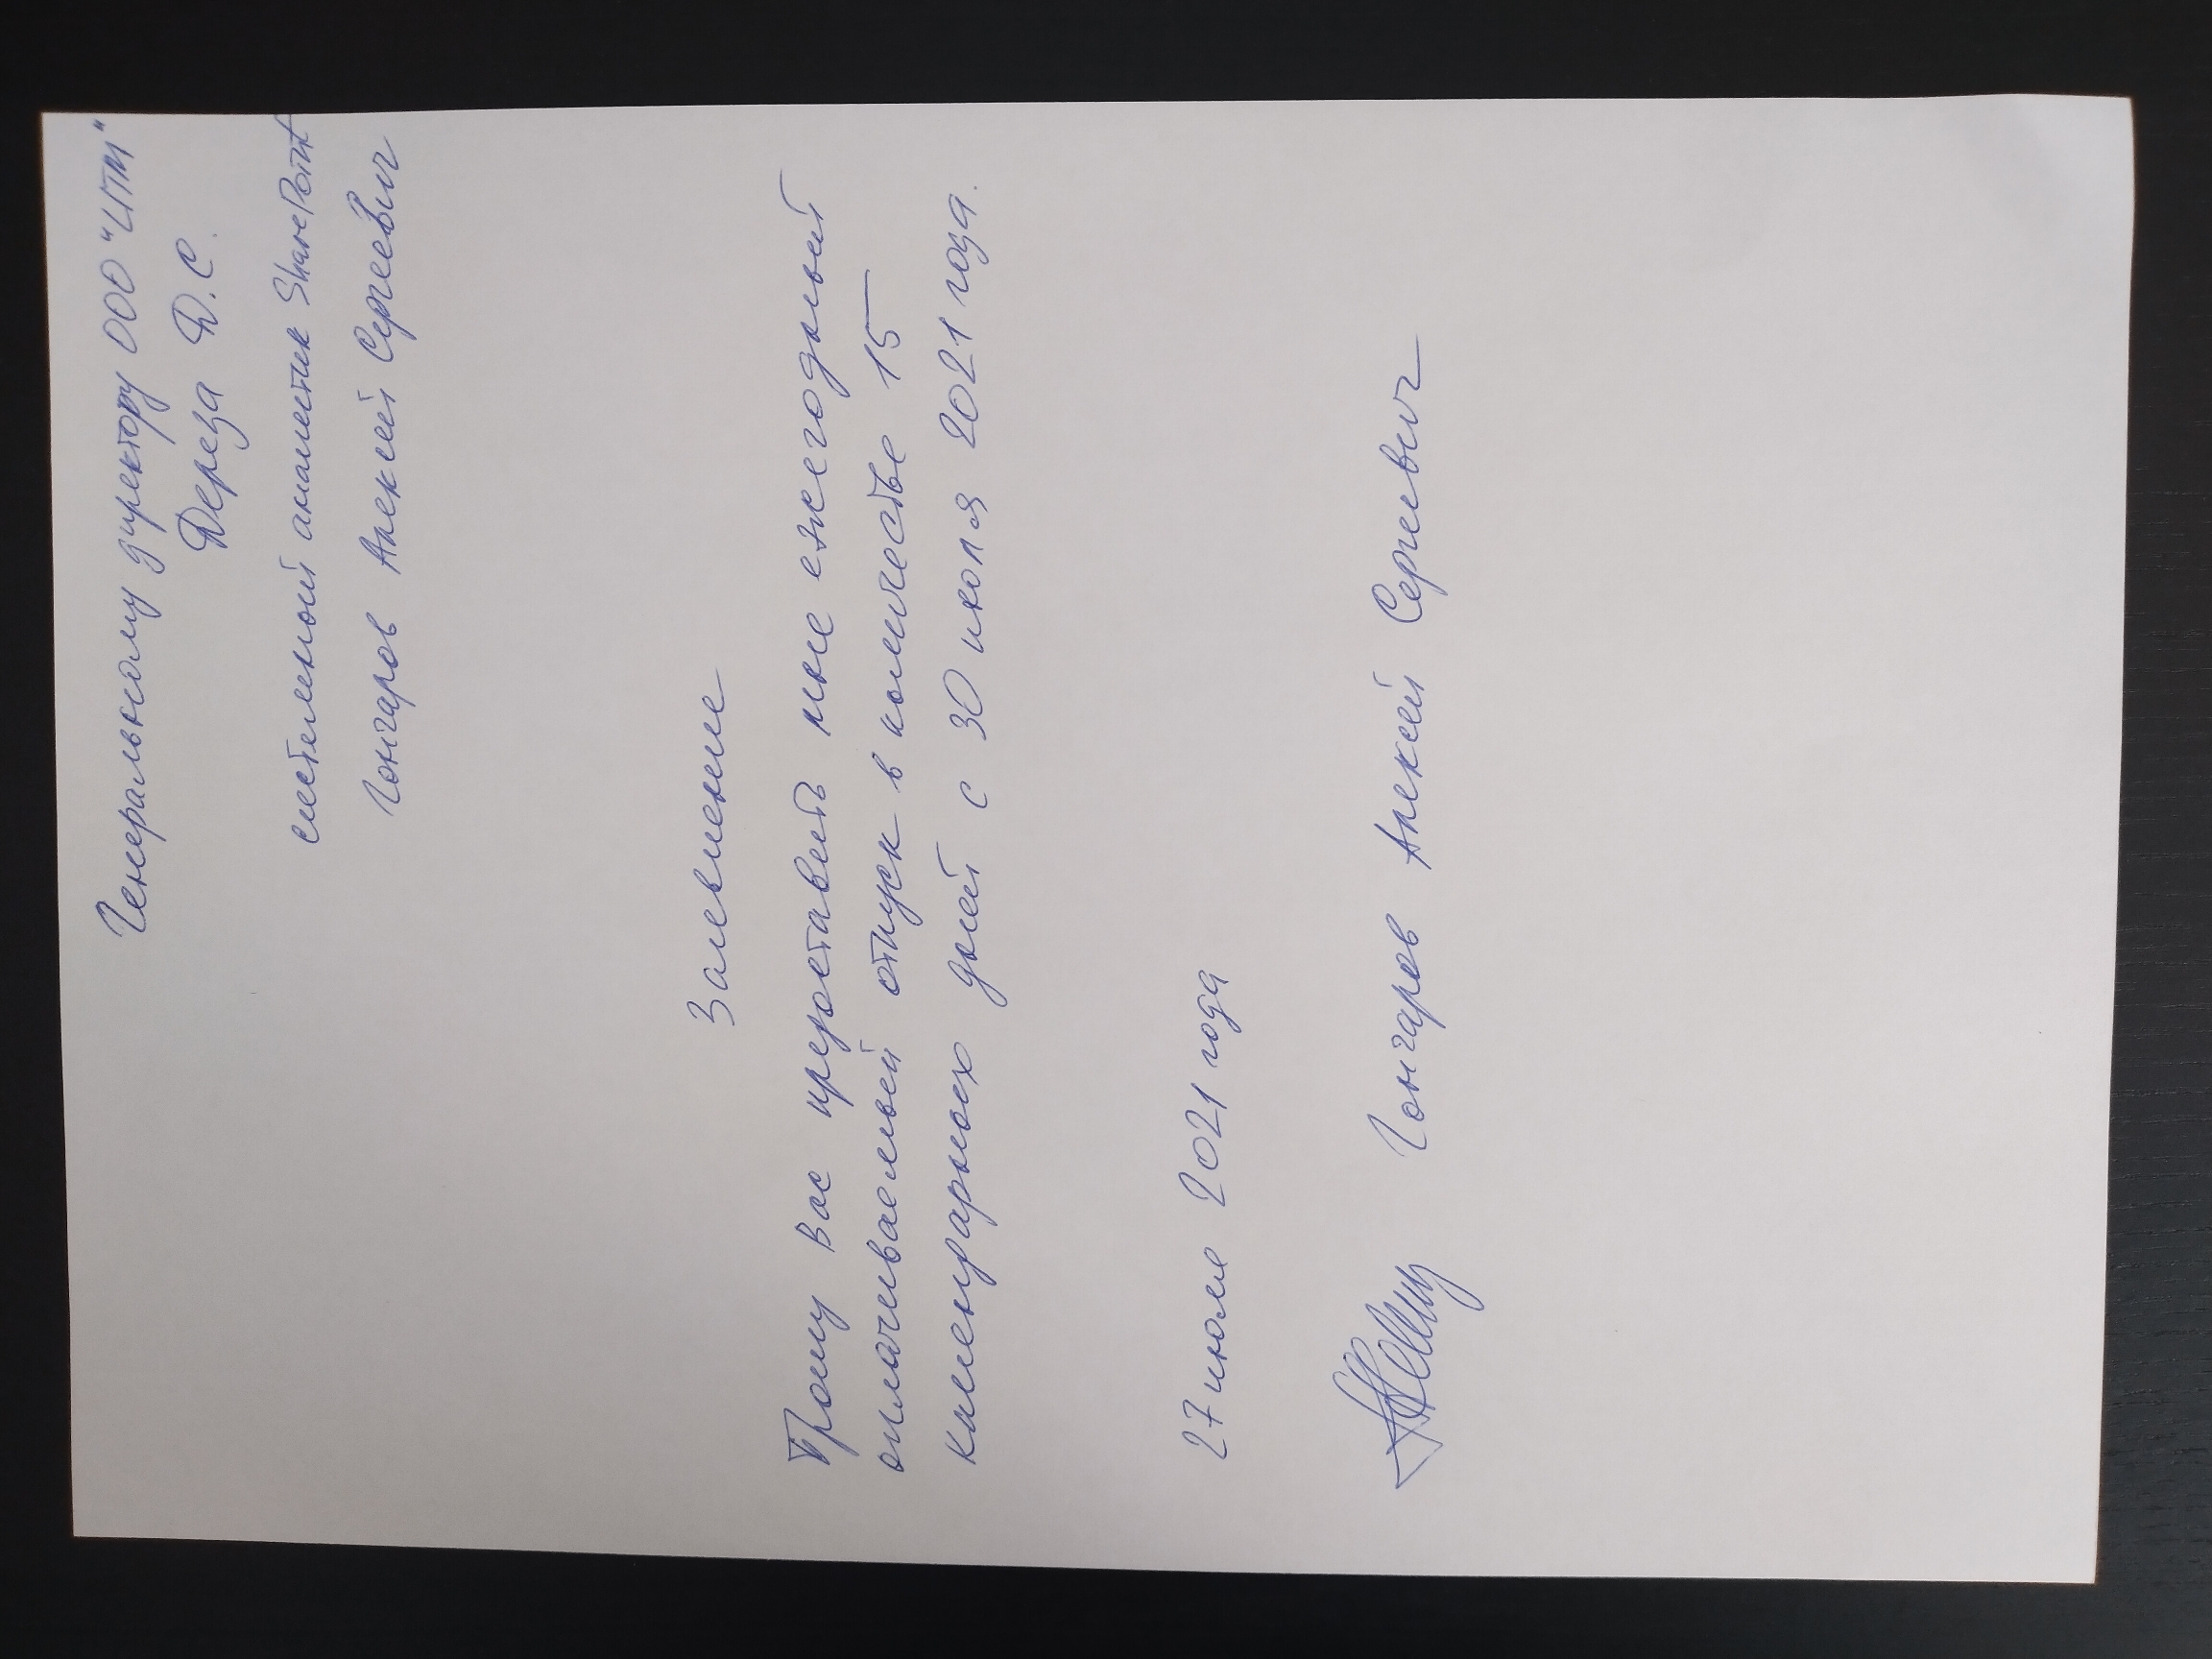 Генеральному директору ООО "ИТМ"
Дереца Д.С.
системный аналитик SharePoint
Гонгаров Алексей Сергеевич
Заявление
Прошу Вас предоставить мне ежегодный
оплачиваемый отпуск в количестве 15
календарных дней с 30 июля 2021 года.
27 июля 2021 года
Гонгаров Алексей Сергевич